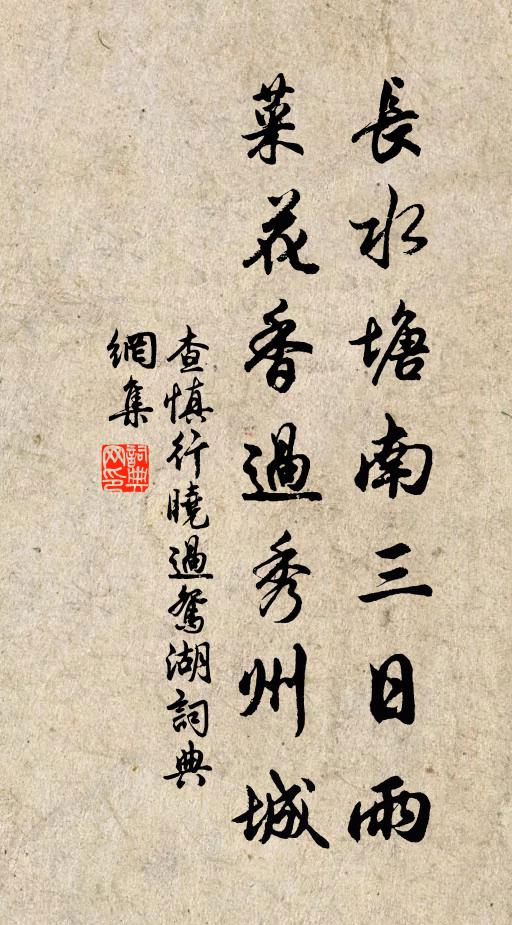 長水塘南三日雨
菜花香過秀州城
查慎行曉過鴛湖詞典
網集
詞典網印